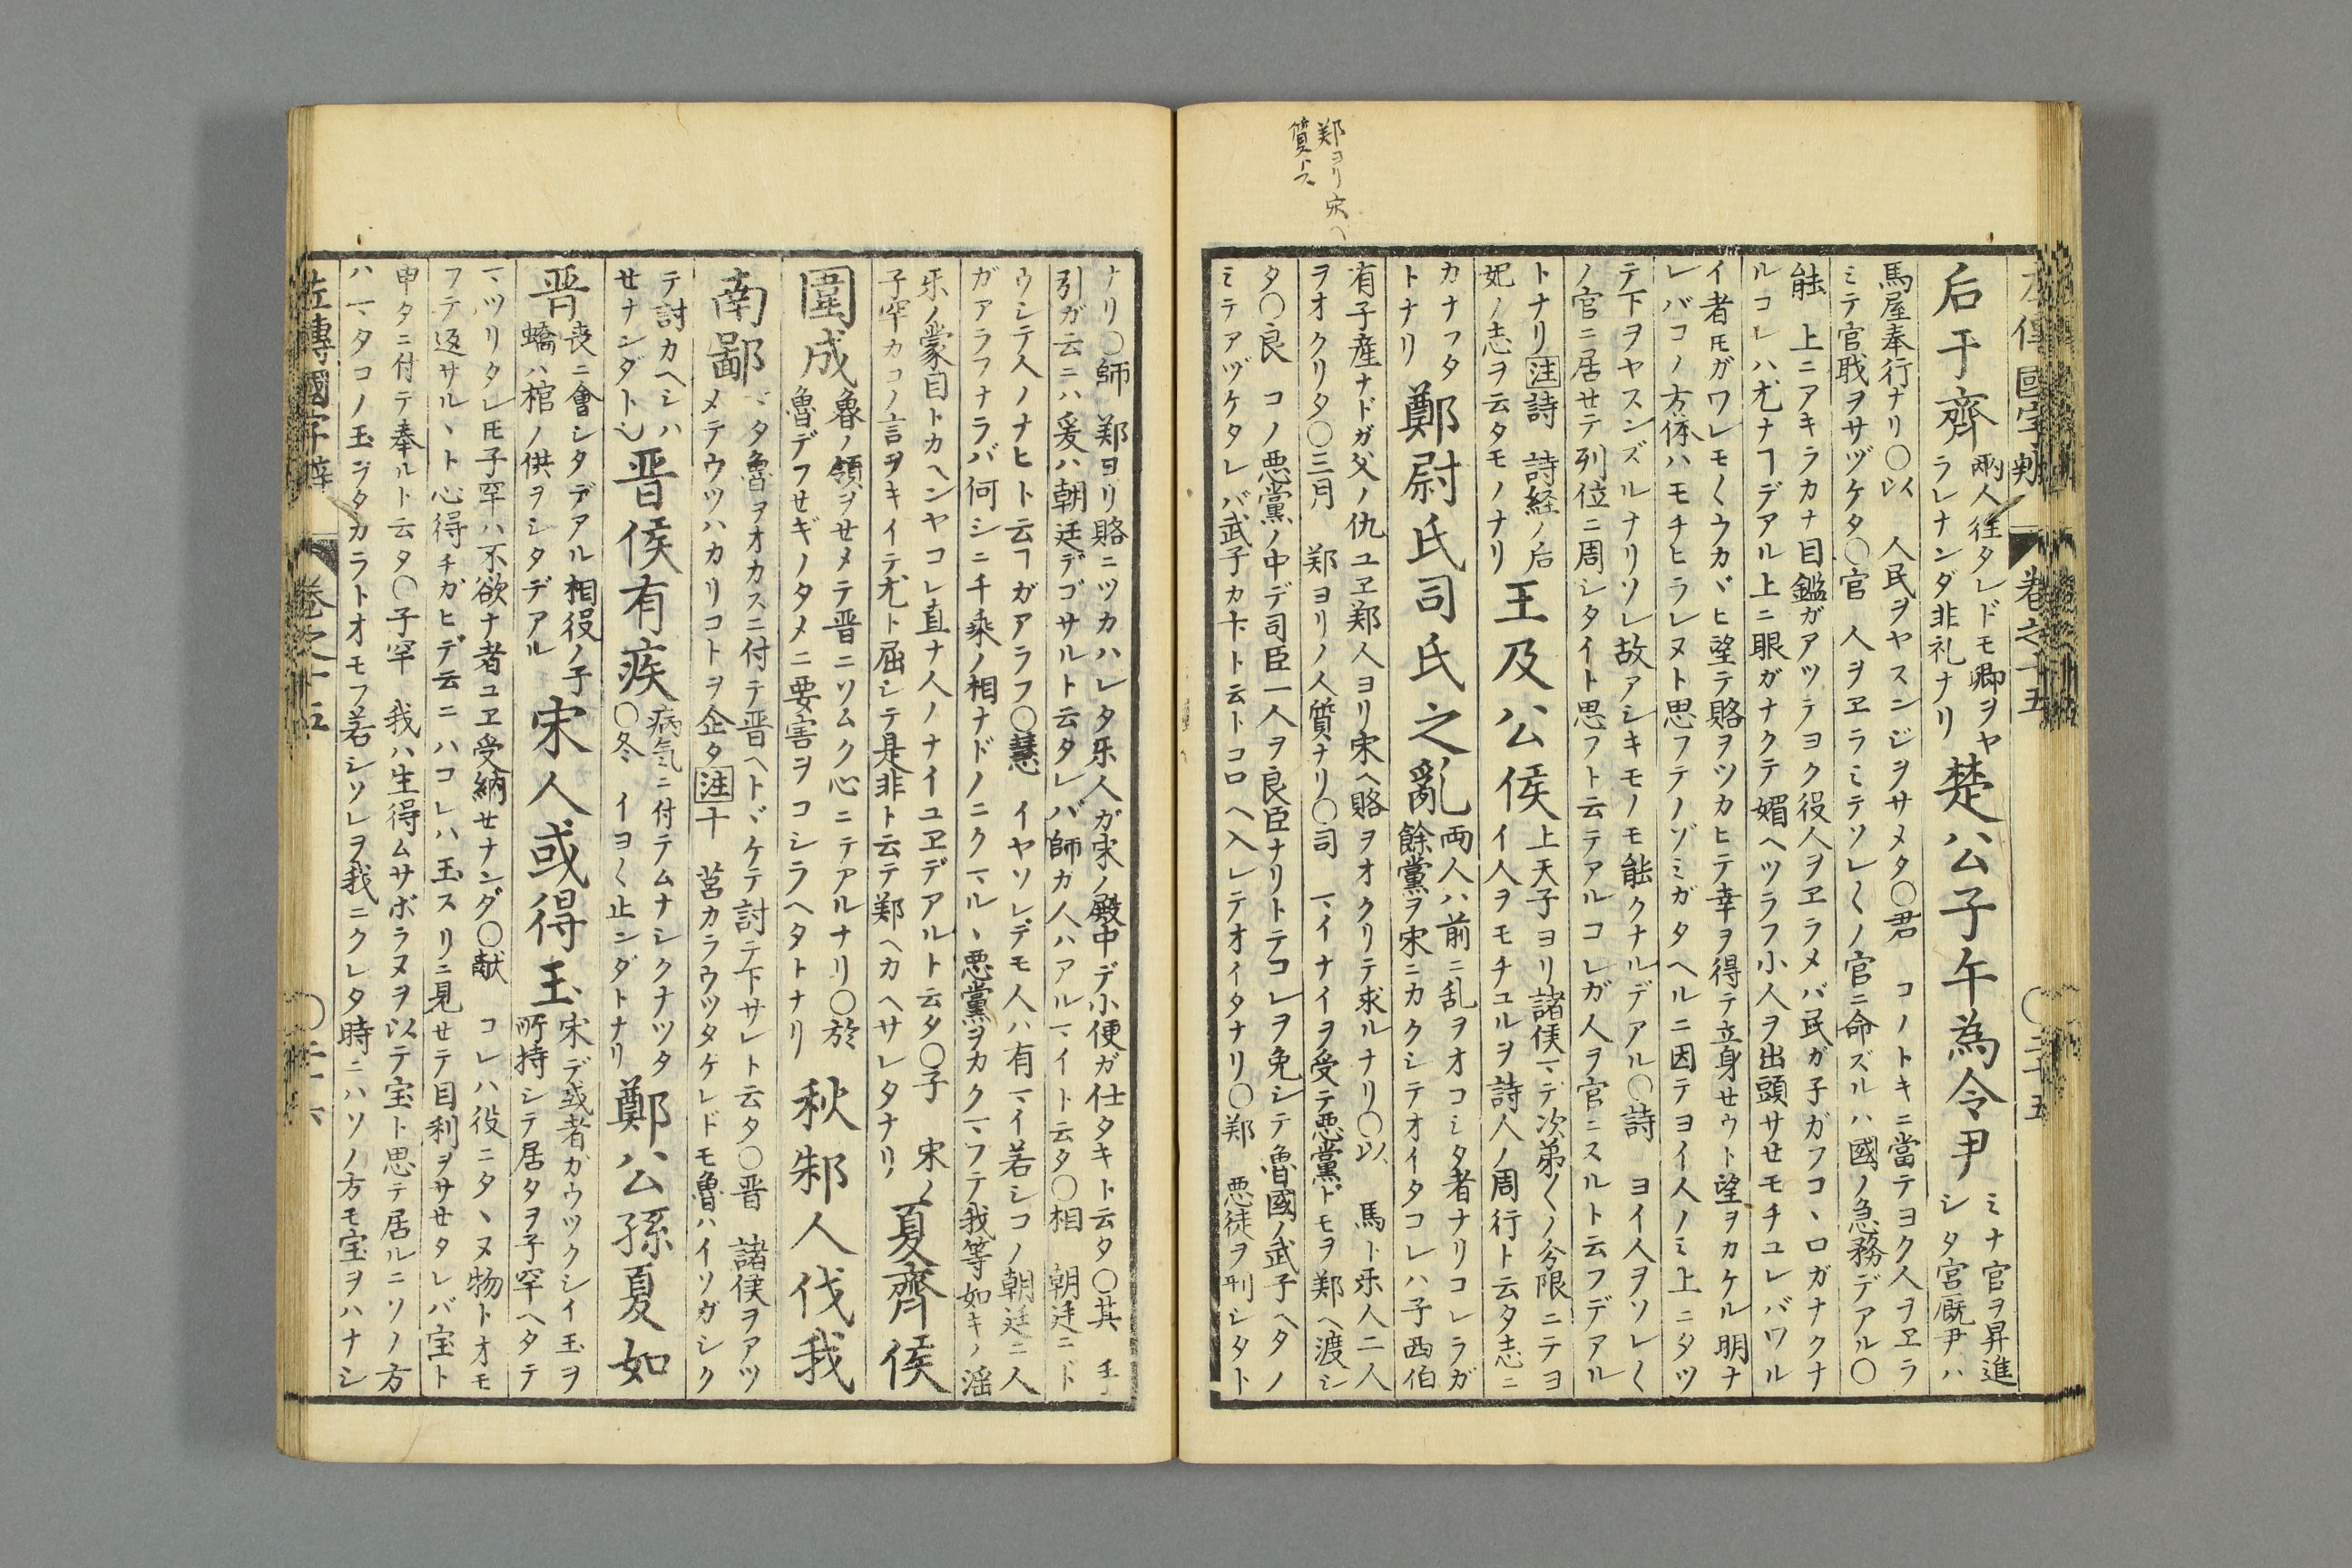 郑ヨリ宋ヘ
質トス
左傳國字辨 卷之十五 〇二十五
后于齊 兩人往タレドモ卿ヲヤ
ラレナンダ非礼ナリ
楚公子午為令尹 ミナ官ヲ昇進
シタ宮厩尹ハ
馬屋奉行ナリ〇以 人民ヲヤスンジヲサメタ〇君 コノトキニ當テヨク人ヲヱラ
ミテ官戝ヲサヅケタ〇官 人ヲヱラミテソレ〱ノ官ニ命ズルハ國ノ急務デアル〇
能 上ニアキラカナ目鑑ガアツテヨク役人ヲヱラメバ民ガ子ガフコヽロガナクナ
ルコレハ尤ナヿデアル上ニ眼ガナクテ媚ヘツラフ小人ヲ出頭サセモチユレバワル
イ者𪜈ガワレモ〱ウカヾヒ望テ賂ヲツカヒテ幸ヲ得テ立身せウト望ヲカケル明ナ
レバコノ方体ハモチヒラレヌト思フテノゾミガタヘルニ因テヨイ人ノミ上ニタツ
テ下ヲヤスンズルナリソレ故アシキモノモ能クナルデアル〇詩 ヨイ人ヲソレ〱
ノ官ニ居せテ列位ニ周シタイト思フト云テアルコレガ人ヲ官ニスルト云フデアル
トナリ注詩 詩経ノ后
妃ノ志ヲ云タモノナリ
王及公侯 上天子ヨリ諸侯マデ次弟〱ノ分限ニテヨ
イ人ヲモチユルヲ詩人ノ周行ト云タ志ニ
カナフタ
トナリ
鄭尉氏司氏之亂 両人ハ前ニ乱ヲオコシタ者ナリコレラガ
餘黨ヲ宋ニカクシテオイタコレハ子西伯
有子産ナドガ父ノ仇ユヱ郑人ヨリ宋ヘ賂ヲオクリテ求ルナリ〇以 馬ト乐人二人
ヲオクリタ〇三月 郑ヨリノ人質ナリ〇司 マイナイヲ受テ悪黨ドモヲ郑ヘ渡シ
タ〇良 コノ悪黨ノ中デ司臣一人ヲ良臣ナリトテコレヲ免シテ魯國ノ武子ヘタノ
ミテアヅケタレバ武子カ卞ト云トコロヘ入レテオイタナリ〇郑 悪徒ヲ刑シタト
ナリ〇師 郑ヨリ賂ニツカハレタ乐人ガ宋ノ殿中デ小便ガ仕タキト云タ〇其 手
引ガ云ニハ爰ハ朝廷デゴサルト云タレバ師カ人ハアルマイト云タ〇相 朝廷ニド
ウシテ人ノナヒト云ヿガアラフ〇慧 イヤソレデモ人ハ有マイ若シコノ朝廷ニ人
ガアラフナラバ何シニ千乘ノ相ナドノニクマルヽ悪黨ヲカクマフテ我等如キノ滛
乐ノ蒙目トカヘンヤコレ直ナ人ノナイユヱデアルト云タ〇子 宋ノ
子罕カコノ言ヲキイテ尤ト屈シテ是非ト云テ郑ヘカヘサレタナリ
夏齊侯
圍成 魯ノ領ヲせメテ晋ニソムク心ニテアルナリ〇於
魯デフせギノタメニ要害ヲコシラヘタトナリ
秋邾人伐我
南鄙 マタ魯ヲオカスニ付テ晋ヘトヾケテ討テ下サレト云タ〇晋 諸侯ヲアツ
メテウツハカリコトヲ企タ注干 莒カラウツタケレドモ魯ハイソガシク
テ討カヘシハ
せナンダト
晋侯有疾 病気ニ付テムナシクナツタ
〇冬 イヨ〱止ンダトナリ
鄭公孫夏如
晋 喪ニ會シタデアル相役ノ子
蟜ハ棺ノ供ヲシタデアル
宋人或得玉 宋デ或者カウツクシイ玉ヲ
所持シテ居タヲ子罕ヘタテ
マツリタレ𪜈子罕ハ不欲ナ者ユヱ受納せナンダ〇献 コレハ役ニタヽヌ物トオモ
フテ返サルヽト心得チガヒデ云ニハコレハ玉スリニ見せテ目利ヲサせタレバ宝ト
申タニ付テ奉ルト云タ〇子罕 我ハ生得ムサボラヌヲ以テ宝ト思テ居ルニソノ方
ハマタコノ玉ヲタカラトオモフ若シソレヲ我ニクレタ時ニハソノ方モ宝ヲハナシ
左傳國字辨 卷之十五 〇二十六